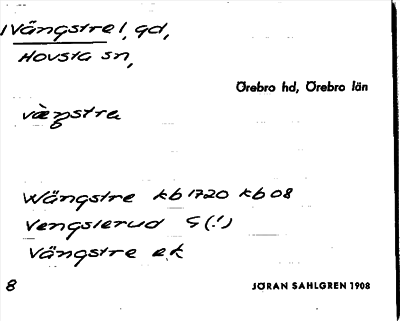 1 Vängstre l, gd,
Hovsta sn,
Örebro hd, Örebro län
vængstra
Wängstre kb 1720 kb 08
Vengsterud S (!)
Vängstre ek
8
JÖRAN SAHLGREN 1908